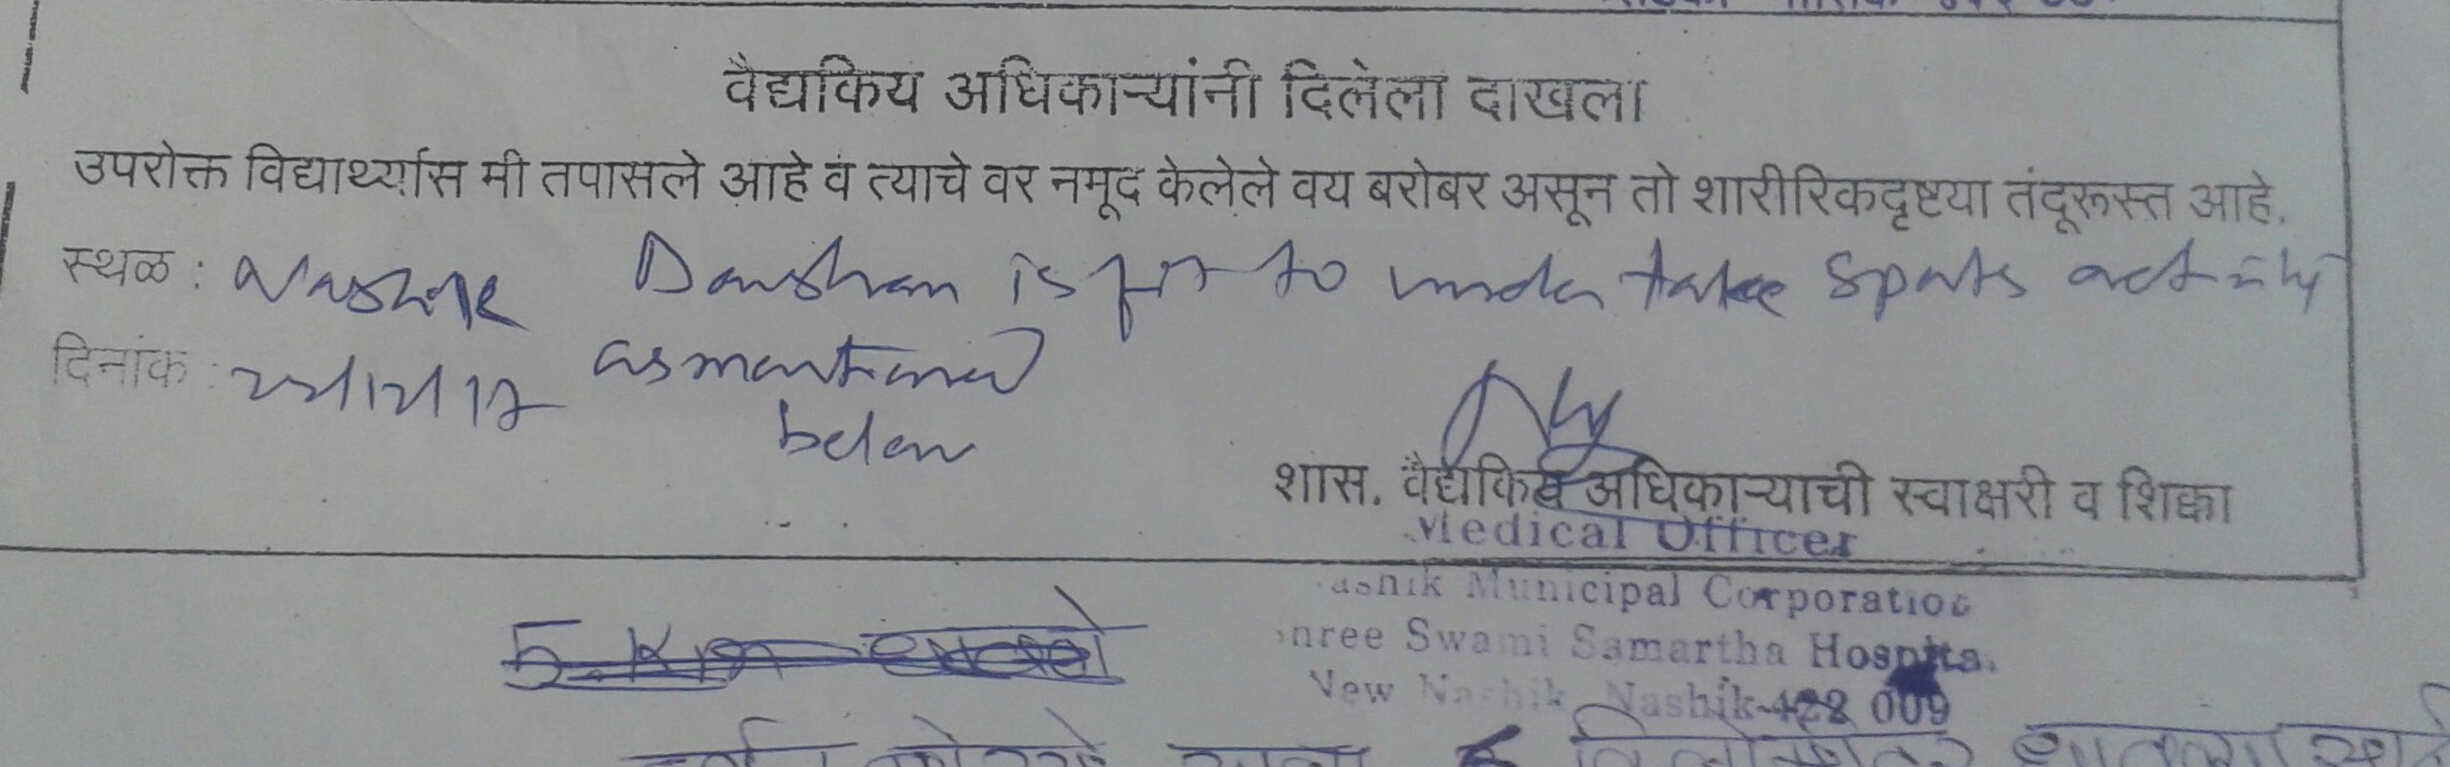 वैद्यकिय अधिकाऱ्यांनी दिलेला दाखला
उपरोक्त विद्यार्थ्यास मी तपासले आहे व त्याचे वर नमूद केलेले वय बरोबर असून तो शारीरिकदृष्टया तंदूरूस्त आहे.
स्थळ : Nashik Darshan is fit to under take sports activity
दिनांक : 22/12/17 as mentioned
below
शास. वैद्यकिय अधिकाऱ्याची स्वाक्षरी व शिक्का
Medical Officer
Nashik Municipal Corporation
Shree Swami Samartha Hospital
New Nashik, Nashik-422 009
5 Km